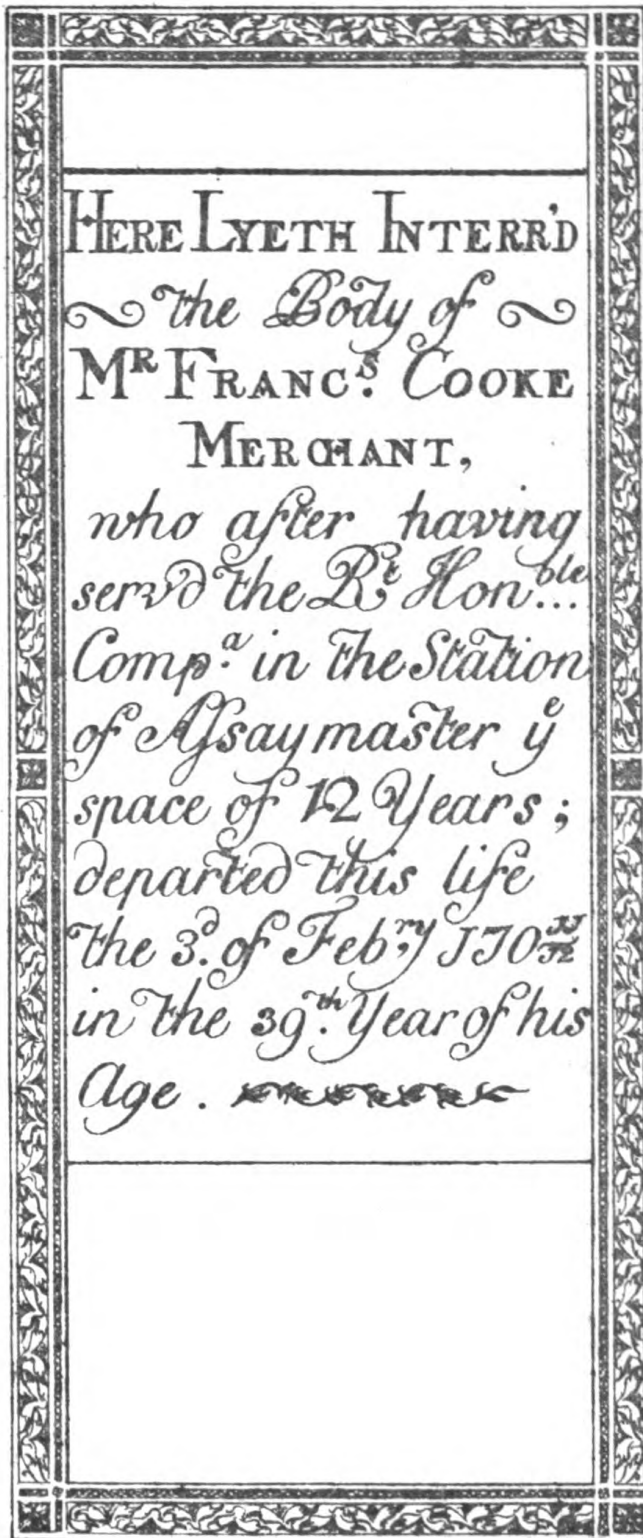 HERE LYETH INTERR'D
the Body of
MR FRANCS. COOKE
MERCHANT,
who after having
serv'd the Rt Honble...
Compa. in the Station
of Assaymaster ye
space of 12 Years;
departed this life
the 3d. of Febry 170 11/12
in the 39th. Year of his
Age.